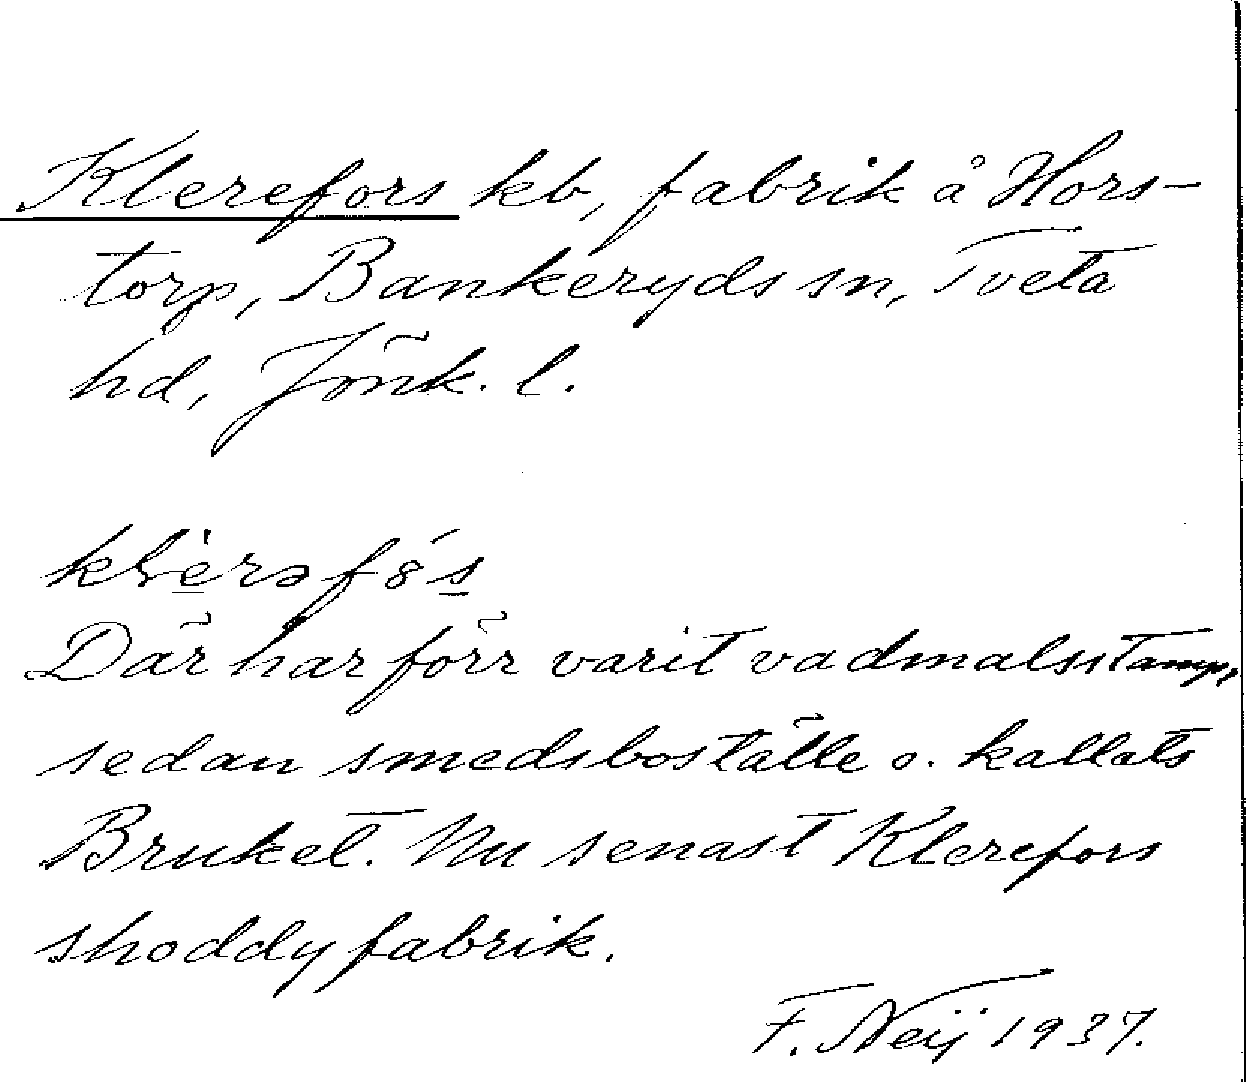 Klerefors kb, fabrik å Hors-
torp, Bankeryds sn, Tveta
hd, Jönk. l.
Där har förr varit vadmalsstamp,
sedan smedsboställe o. kallats
Bruket. Nu senast Klerefors
shoddyfabrik.
F. Neij 1937.